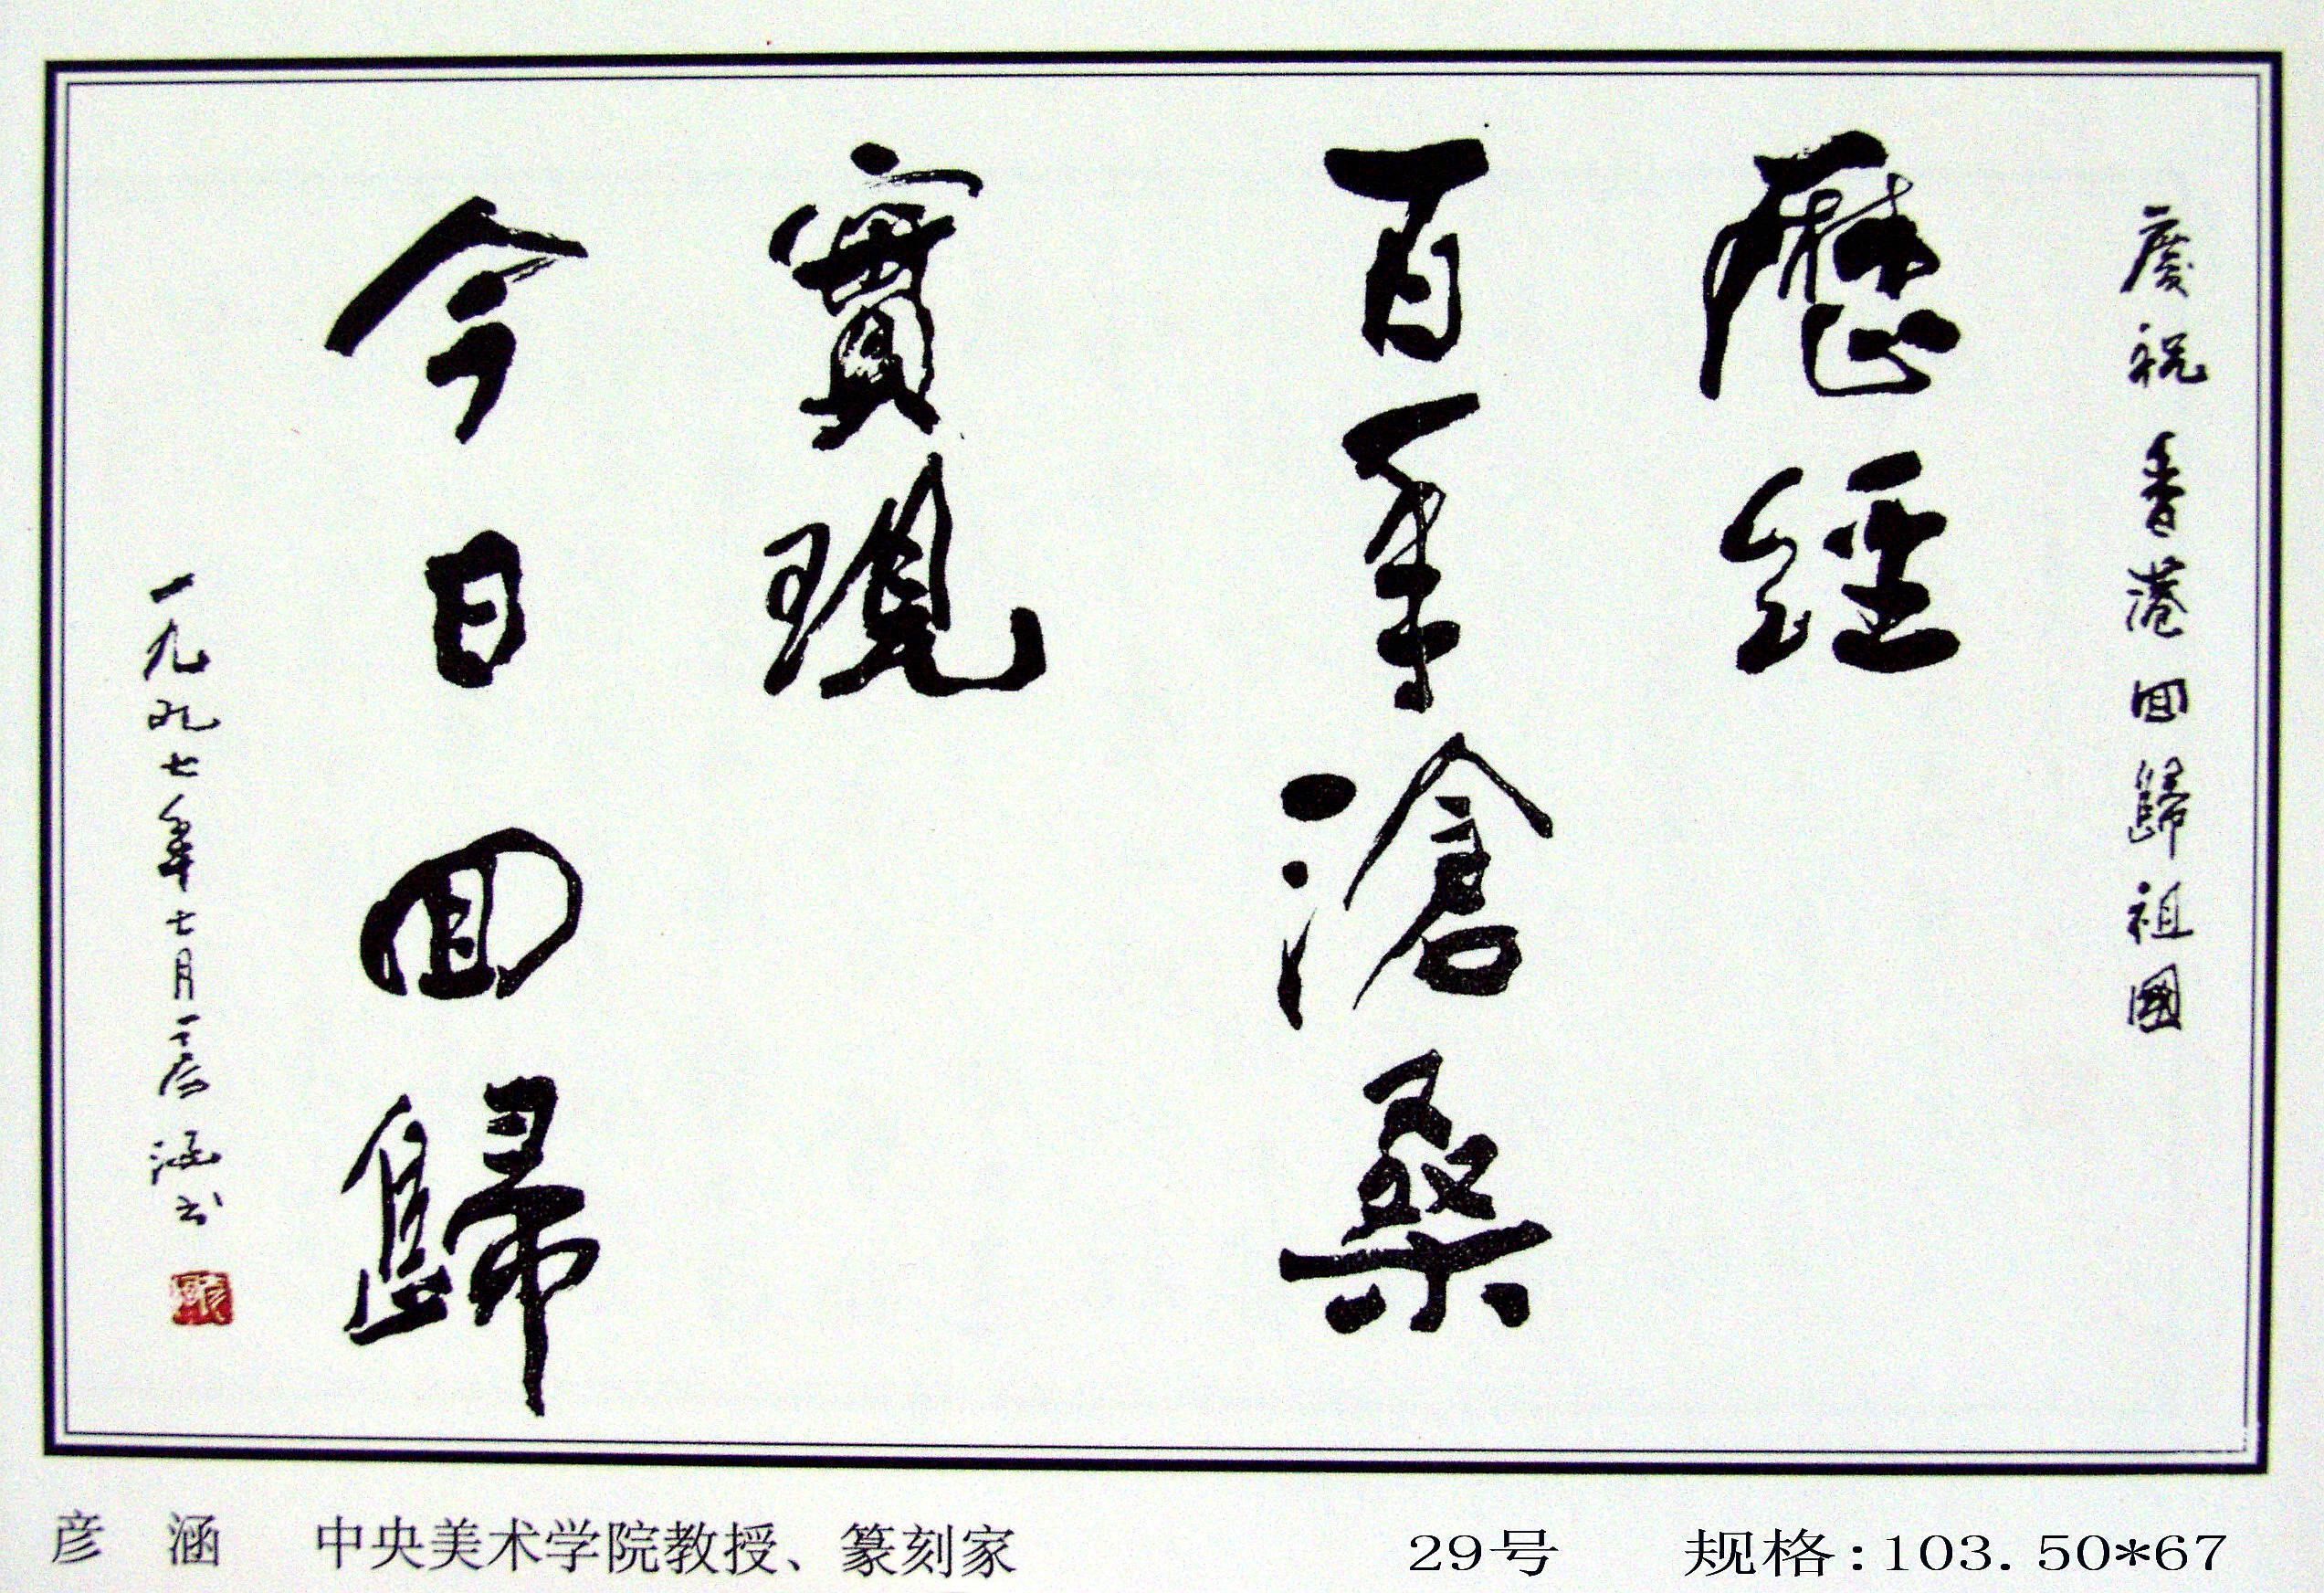 慶祝香港回歸祖國
歷經
百年滄桑
實現
今日回歸
一九九七年七月一日彦涵书
彦 涵 中央美术学院教授、篆刻家 29号 规格:103.50*67